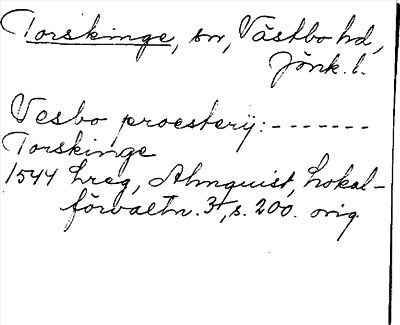 Torskinge, sn, Västbo hd,
Jönk. l.
Vesbo proesterij: -------
Torskinge
1544 Lreg, Almquist, Lokal-
förvaltn. 3, s. 200. orig.